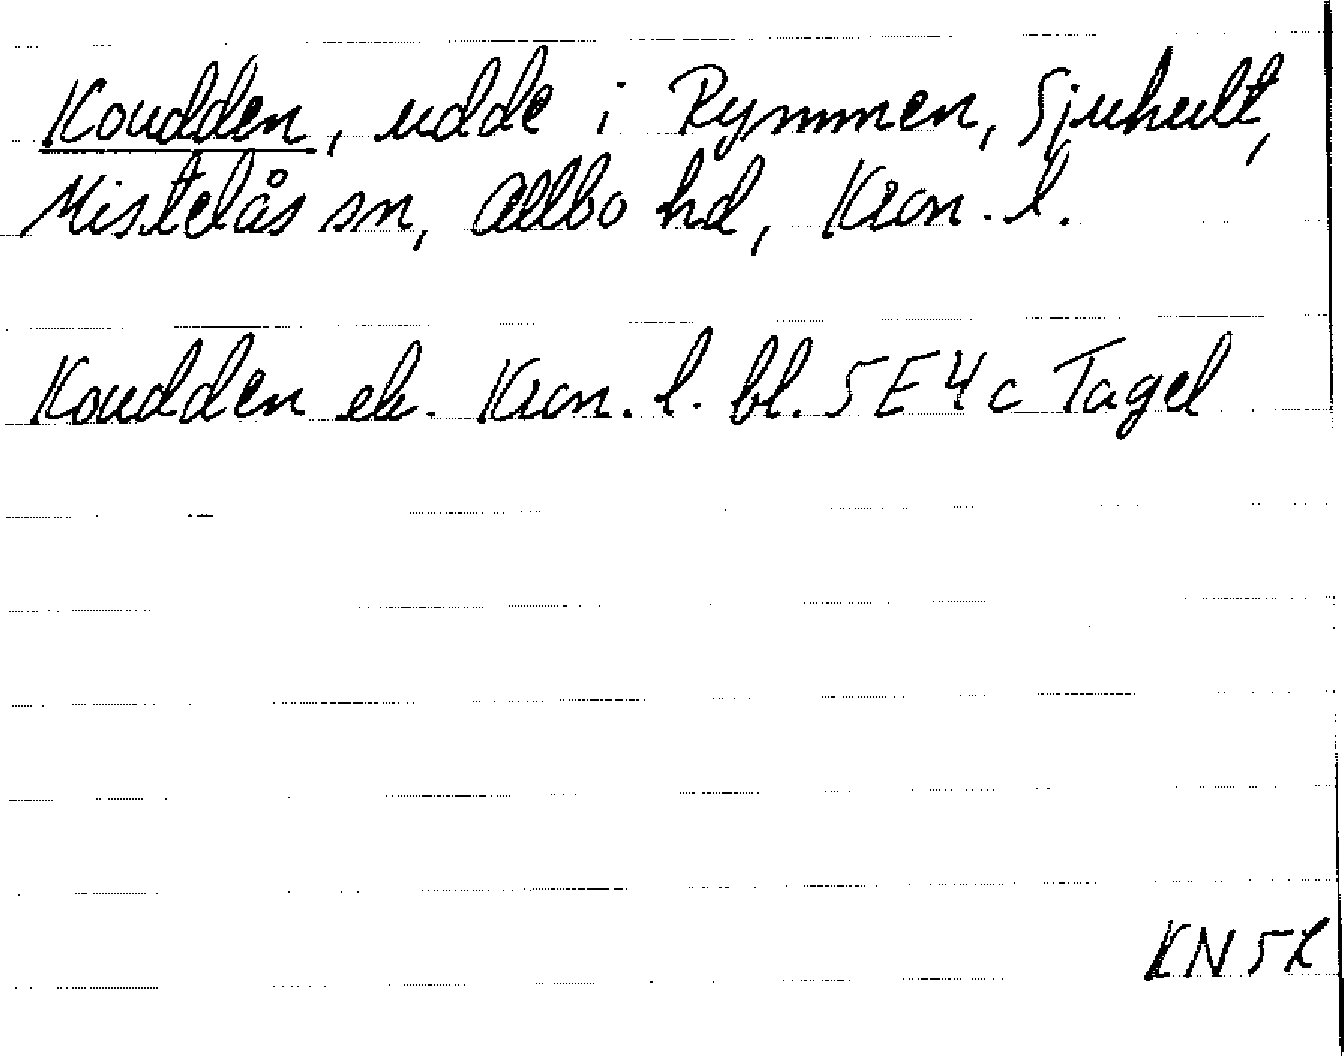 Koudden, udde i Rymmen, Sjuhult,
Mistelås sn, Allbo hd, Kron. l.
Koudden ek. Kron. l. bl. 5E4c Tagel